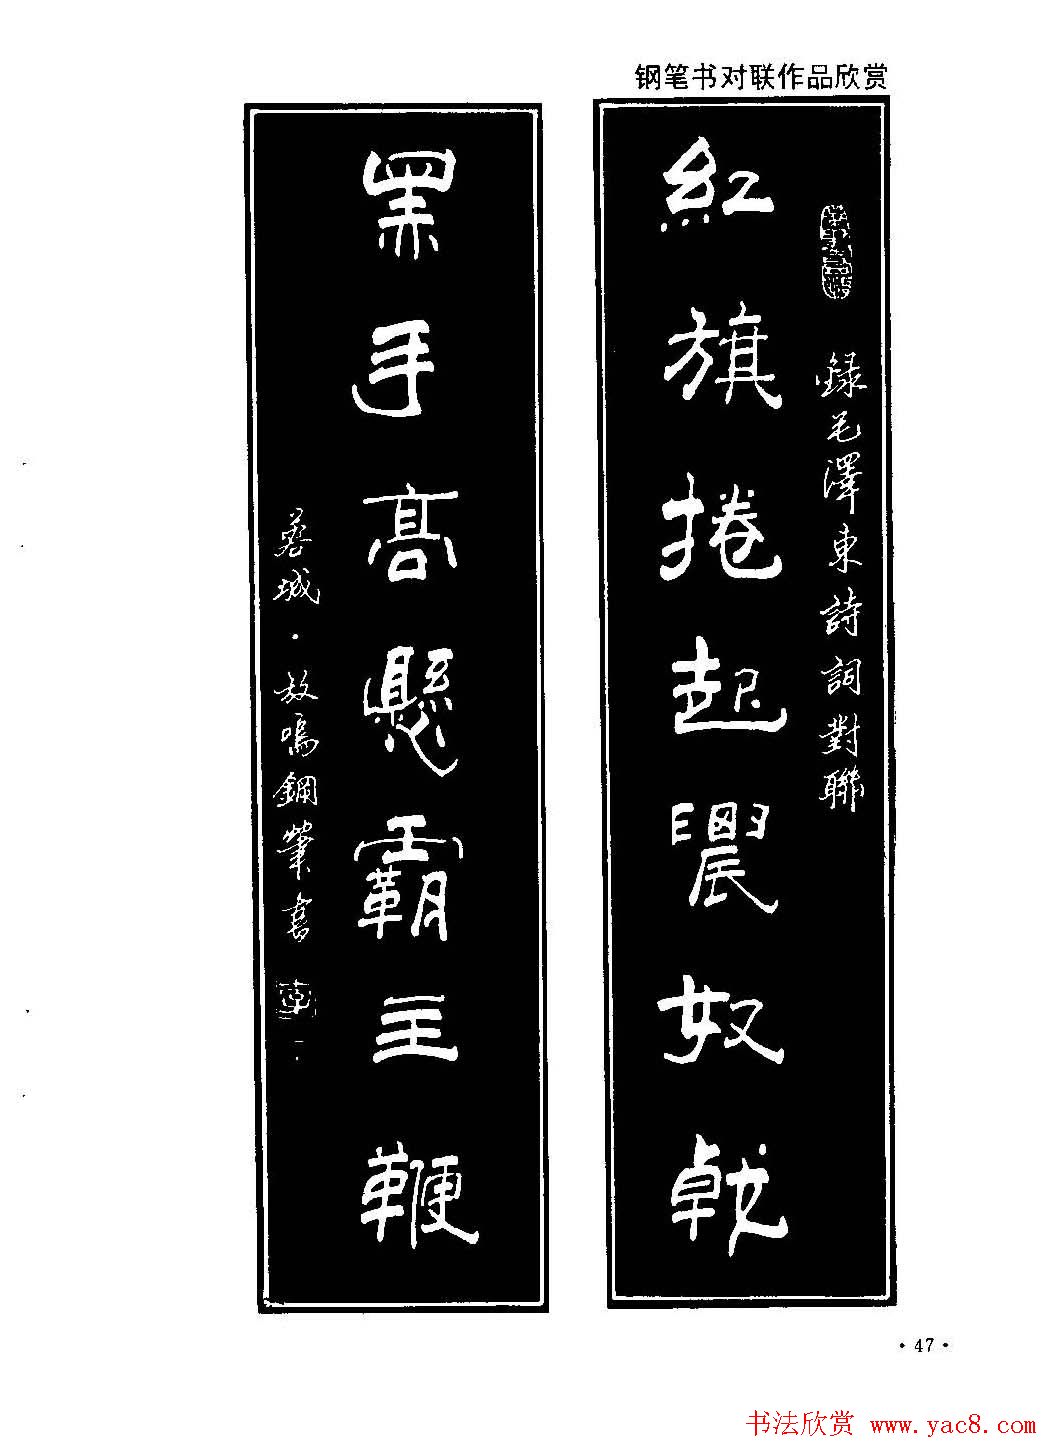 钢笔书对联作品欣赏
錄毛澤東詩詞對聯
紅旗捲起農奴戟
黑手高懸霸主鞭
蓉城·放鳴鋼筆書
·47·
书法欣赏 www.yac8.com